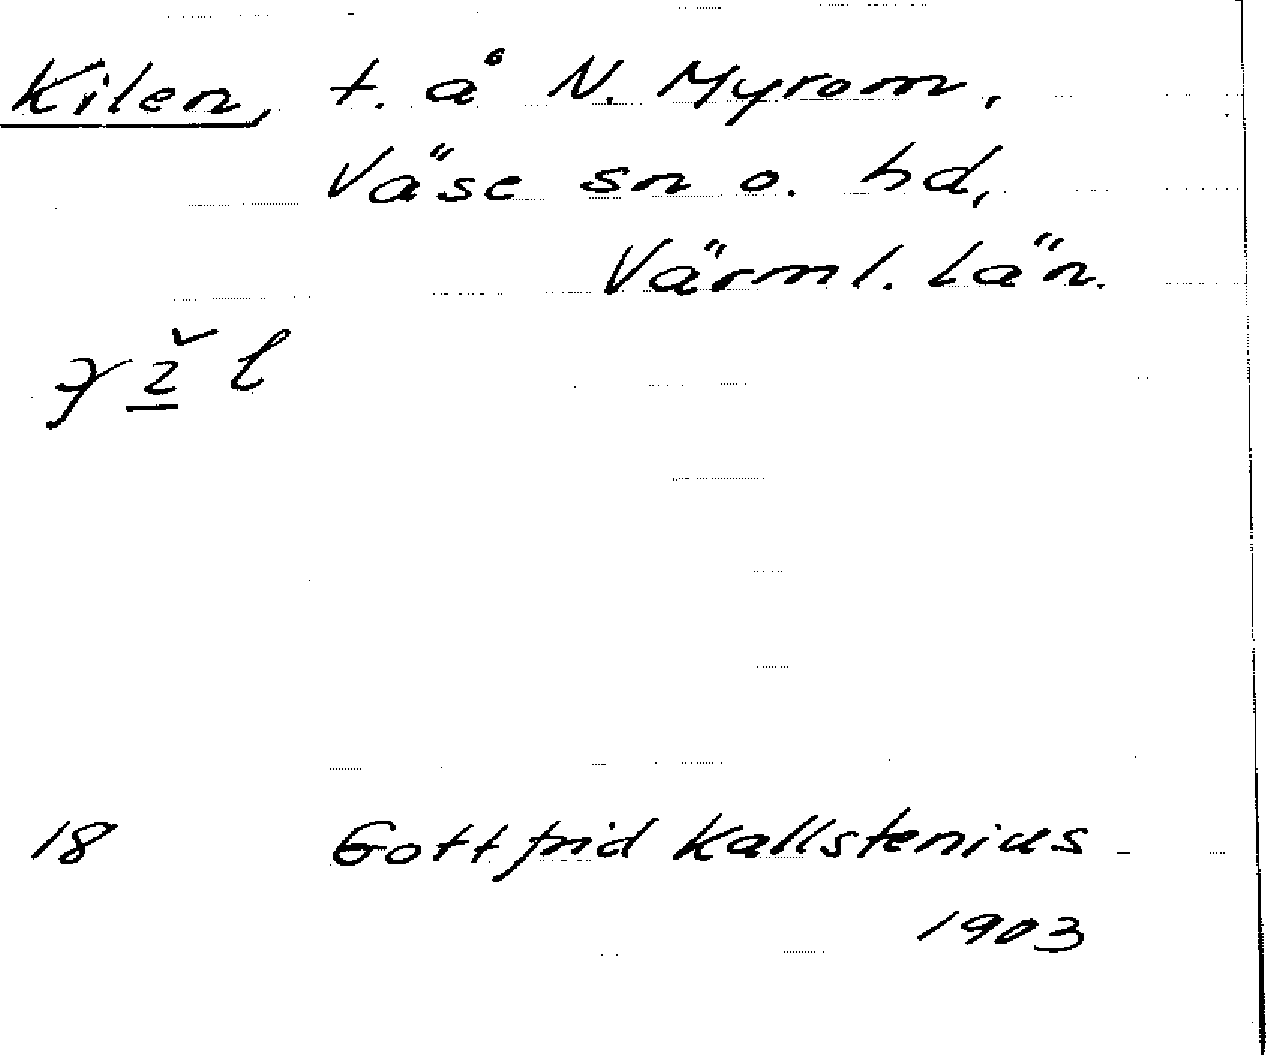 Kilen, t. å N. Myrom,
Väse sn o. hd,
Värml. Län.
18 Gottfrid Kallstenius
1903